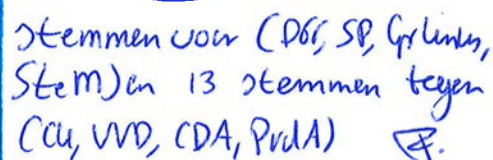 stemmen voor (D66, SP, GrLinks,
SteM) en 13 stemmen tegen
(CU, VVD, CDA, PvdA)